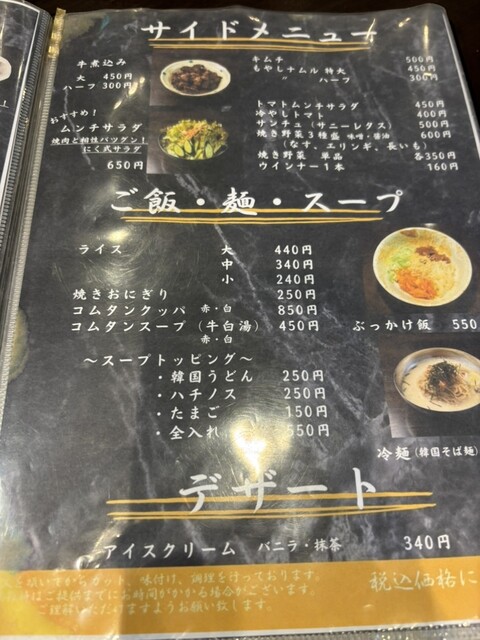 サイドメニュー
牛煮込み
大 450円
ハーフ 300円
キムチ 500円
もやしナムル 特大 450円
〃 ハーフ 300円
おすすめ!
ムンチサラダ
焼肉と相性バツグン!
にく式サラダ
650円
トマトムンチサラダ 450円
冷やしトマト 400円
サンチュ(サニーレタス) 500円
焼き野菜3種盛 味噌・醤油 600円
(なす、エリンギ、長いも)
焼き野菜 単品 各350円
ウインナー1本 160円
ご飯・麺・スープ
ライス 大 440円
中 340円
小 240円
焼きおにぎり 250円
コムタンクッパ 赤・白 850円
コムタンスープ(牛白湯) 450円
赤・白
ぶっかけ飯 550
〜スープトッピング〜
・韓国うどん 250円
・ハチノス 250円
・たまご 150円
・全入れ 550円
冷麺(韓国そば麺)
デザート
アイスクリーム バニラ・抹茶 340円
カット、味付け、調理を行っております。
ご提供までにお時間がかかる場合がございます。
ご理解いただけますようお願い致します。
税込価格に